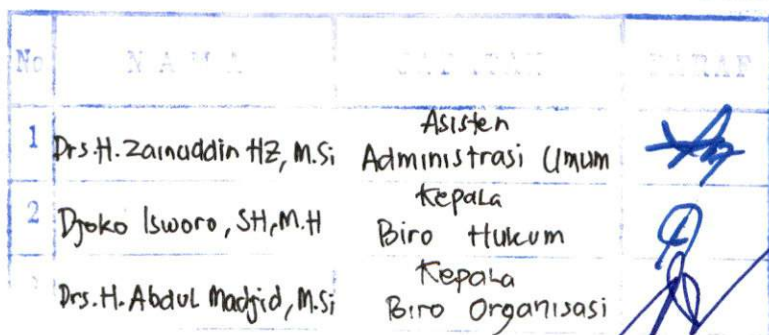 No N A M A JABATAN PARAF
1 Drs. H. Zainuddin HZ, M.Si Asisten Administrasi Umum
2 Djoko Isworo, SH, M.H Kepala Biro Hukum
Drs. H. Abdul Madjid, M.Si Kepala Biro Organisasi